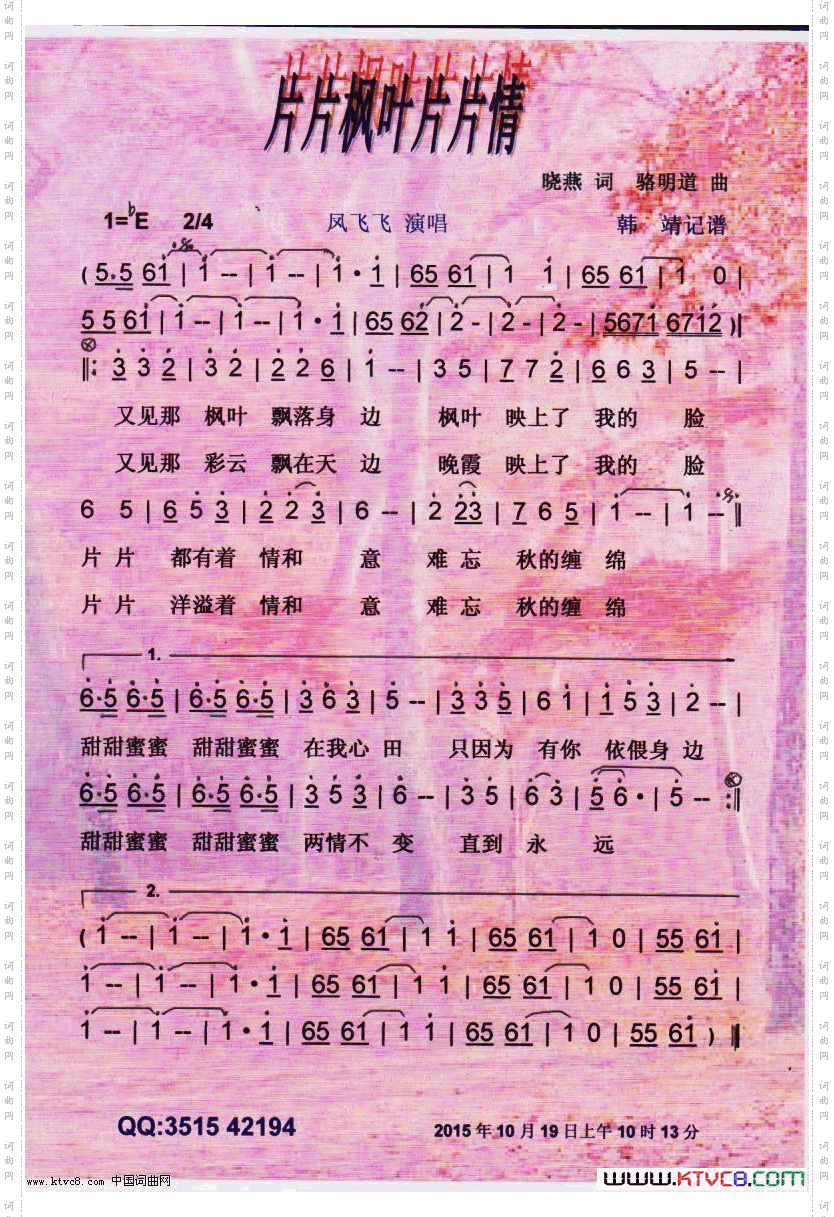 片片枫叶片片情
晓燕 词 骆明道 曲
1=♭E 2/4 风飞飞 演唱 韩 靖记谱
( 5.5 61 | 1 -- | 1 -- | 1 · 1 | 65 61 | 1 1 | 65 61 | 1 0 |
5 5 61 | 1 -- | 1 -- | 1 · 1 | 65 62 | 2 - | 2 - | 2 - | 5671 6712 )|
‖: 3 3 2 | 3 2 | 2 2 6 | 1 -- | 3 5 | 7 7 2 | 6 6 3 | 5 -- |
又见那 枫叶 飘落身 边 枫叶 映上了 我的 脸
又见那 彩云 飘在天 边 晚霞 映上了 我的 脸
6 5 | 6 5 3 | 2 2 3 | 6 -- | 2 23 | 7 6 5 | 1 -- | 1 -- ‖
片 片 都有着 情和 意 难 忘 秋的缠 绵
片 片 洋溢着 情和 意 难 忘 秋的缠 绵
1.
6·5 6·5 | 6·5 6·5 | 3 6 3 | 5 -- | 3 3 5 | 6 1 | 1 5 3 | 2 -- |
甜甜蜜蜜 甜甜蜜蜜 在我心 田 只因为 有你 依偎身 边
6·5 6·5 | 6·5 6·5 | 3 5 3 | 6 -- | 3 5 | 6 3 | 5 6 · | 5 -- :‖
甜甜蜜蜜 甜甜蜜蜜 两情不 变 直到 永 远
2.
( 1 -- | 1 -- | 1 · 1 | 65 61 | 1 1 | 65 61 | 1 0 | 55 61 |
1 -- | 1 -- | 1 · 1 | 65 61 | 1 1 | 65 61 | 1 0 | 55 61 |
1 -- | 1 -- | 1 · 1 | 65 61 | 1 1 | 65 61 | 1 0 | 55 61 ) ‖
QQ:3515 42194 2015年10月19日上午10时13分
www.ktvc8.com 中国词曲网 www.KTVC8.com
词曲网